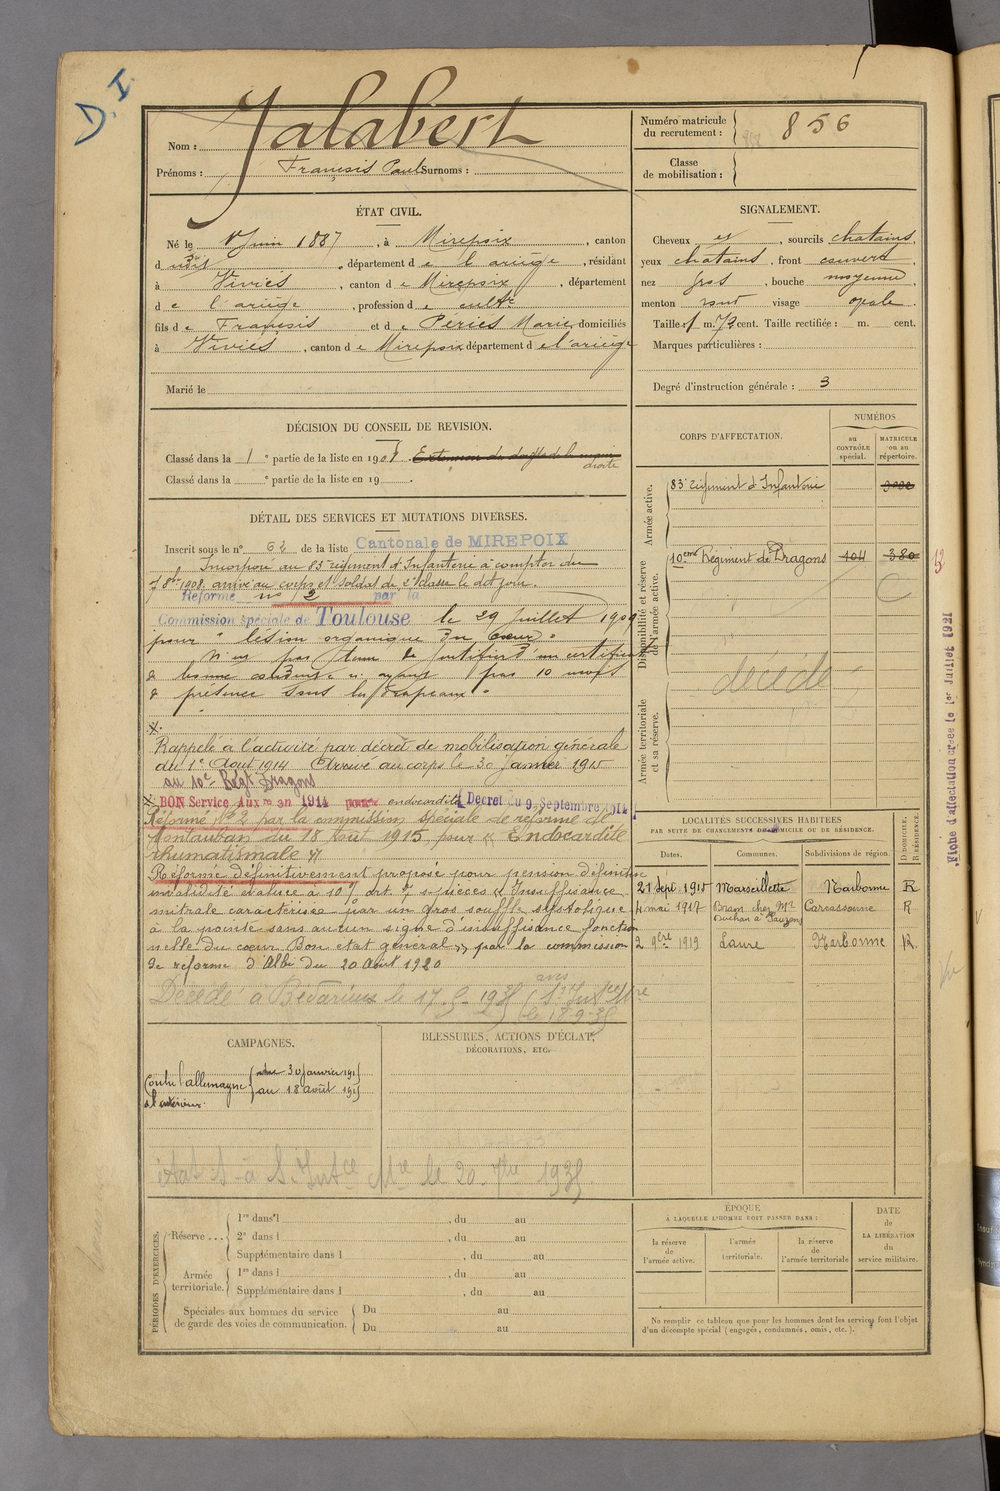 D. I
Nom : Jalabert
Prénoms : François Paul Surnoms :
Numéro matricule du recrutement : 856
Classe de mobilisation :
ÉTAT CIVIL.
Né le Juin 1887, à Mirepoix, canton
d udit, département de l'ariège, résidant
à Viviés, canton de Mirepoix, département
de l'ariège, profession de cultr
fils de François et de Périés Marie domiciliés
à Viviés, canton de Mirepoix département de l'ariège
Marié le
SIGNALEMENT.
Cheveux et, sourcils chatains,
yeux chatains, front couvert,
nez gros, bouche moyenne,
menton rond visage ovale.
Taille : 1 m. 72 cent. Taille rectifiée : m. cent.
Marques particulières :
Degré d'instruction générale : 3
DÉCISION DU CONSEIL DE REVISION.
Classé dans la 1e partie de la liste en 1908. Extension du doigt de la main droite
Classé dans la e partie de la liste en 19 .
DÉTAIL DES SERVICES ET MUTATIONS DIVERSES.
Inscrit sous le n° 62 de la liste Cantonale de MIREPOIX
Incorporé au 83e régiment d'Infanterie à compter du
7 8bre 1908, arrivé au corps et soldat de 2e classe le dit jour.
Réforme no 2 par la
Commission spéciale de Toulouse le 29 Juillet 1909
pour "lésion organique du cœur"
N'a pas tenu de justifier d'un certificat
de bonne conduite n'ayant pas 10 mois
de présence sous les drapeaux.
Rappelé à l'activité par décret de mobilisation générale
du 1er Août 1914 Arrivé au corps le 30 janvier 1915
au 10e Régt Dragons
BON Service Auxre en 1914 pour endocardite Décret du 9 Septembre 1914
Réformé N°2 par la commission spéciale de réforme de
Montauban du 18 Août 1915 pour "Endocardite
rhumatismale"
Réformé définitivement proposé pour pension définitive
invalidité évaluée à 10% art. 7 s-pièces "Insuffisance
mitrale caractérisée par un gros souffle systolique
à la pointe sans aucun signe d'insuffisance fonction
nelle du cœur Bon état général" par la commission
de réforme d'Albi du 20 Août 1920
Décédé à Bédarieux le 17-9-1935
le 18-9-35
CORPS D'AFFECTATION.
NUMÉROS
au CONTRÔLE spécial.
MATRICULE ou au répertoire.
Armée active.
83e régiment d'Infanterie
Disponibilité et réserve de l'armée active.
10eme Régiment de Dragons 404 380
13
décédé
Armée territoriale et sa réserve.
Fiche d'affectation créée le 1er Juillet 1921
LOCALITÉS SUCCESSIVES HABITÉES
PAR SUITE DE CHANGEMENTS DE DOMICILE OU DE RÉSIDENCE.
Dates. Communes. Subdivisions de région. D DOMICILE, R RÉSIDENCE.
21 sept. 1915 Marseillette Narbonne R
4 mai 1917 Bram chez Mr Carcassonne R
2 9bre 1919 Laure Narbonne R
CAMPAGNES.
Contre l'allemagne du 30 janvier 1915
à l'intérieur. au 18 août 1915
BLESSURES, ACTIONS D'ÉCLAT,
DÉCORATIONS, ETC.
le 20 7bre 1935
PÉRIODES D'EXERCICES.
Réserve ... 1re dans l , du au
2e dans l , du au
Supplémentaire dans l , du au
Armée territoriale. 1re dans l , du au
Supplémentaire dans l , du au
Spéciales aux hommes du service de garde des voies de communication. Du au
Du au
ÉPOQUE
À LAQUELLE L'HOMME DOIT PASSER DANS :
la réserve de l'armée active.
l'armée territoriale.
la réserve de l'armée territoriale
DATE de LA LIBÉRATION du service militaire.
Ne remplir ce tableau que pour les hommes dont les services font l'objet
d'un décompte spécial (engagés, condamnés, omis, etc.).